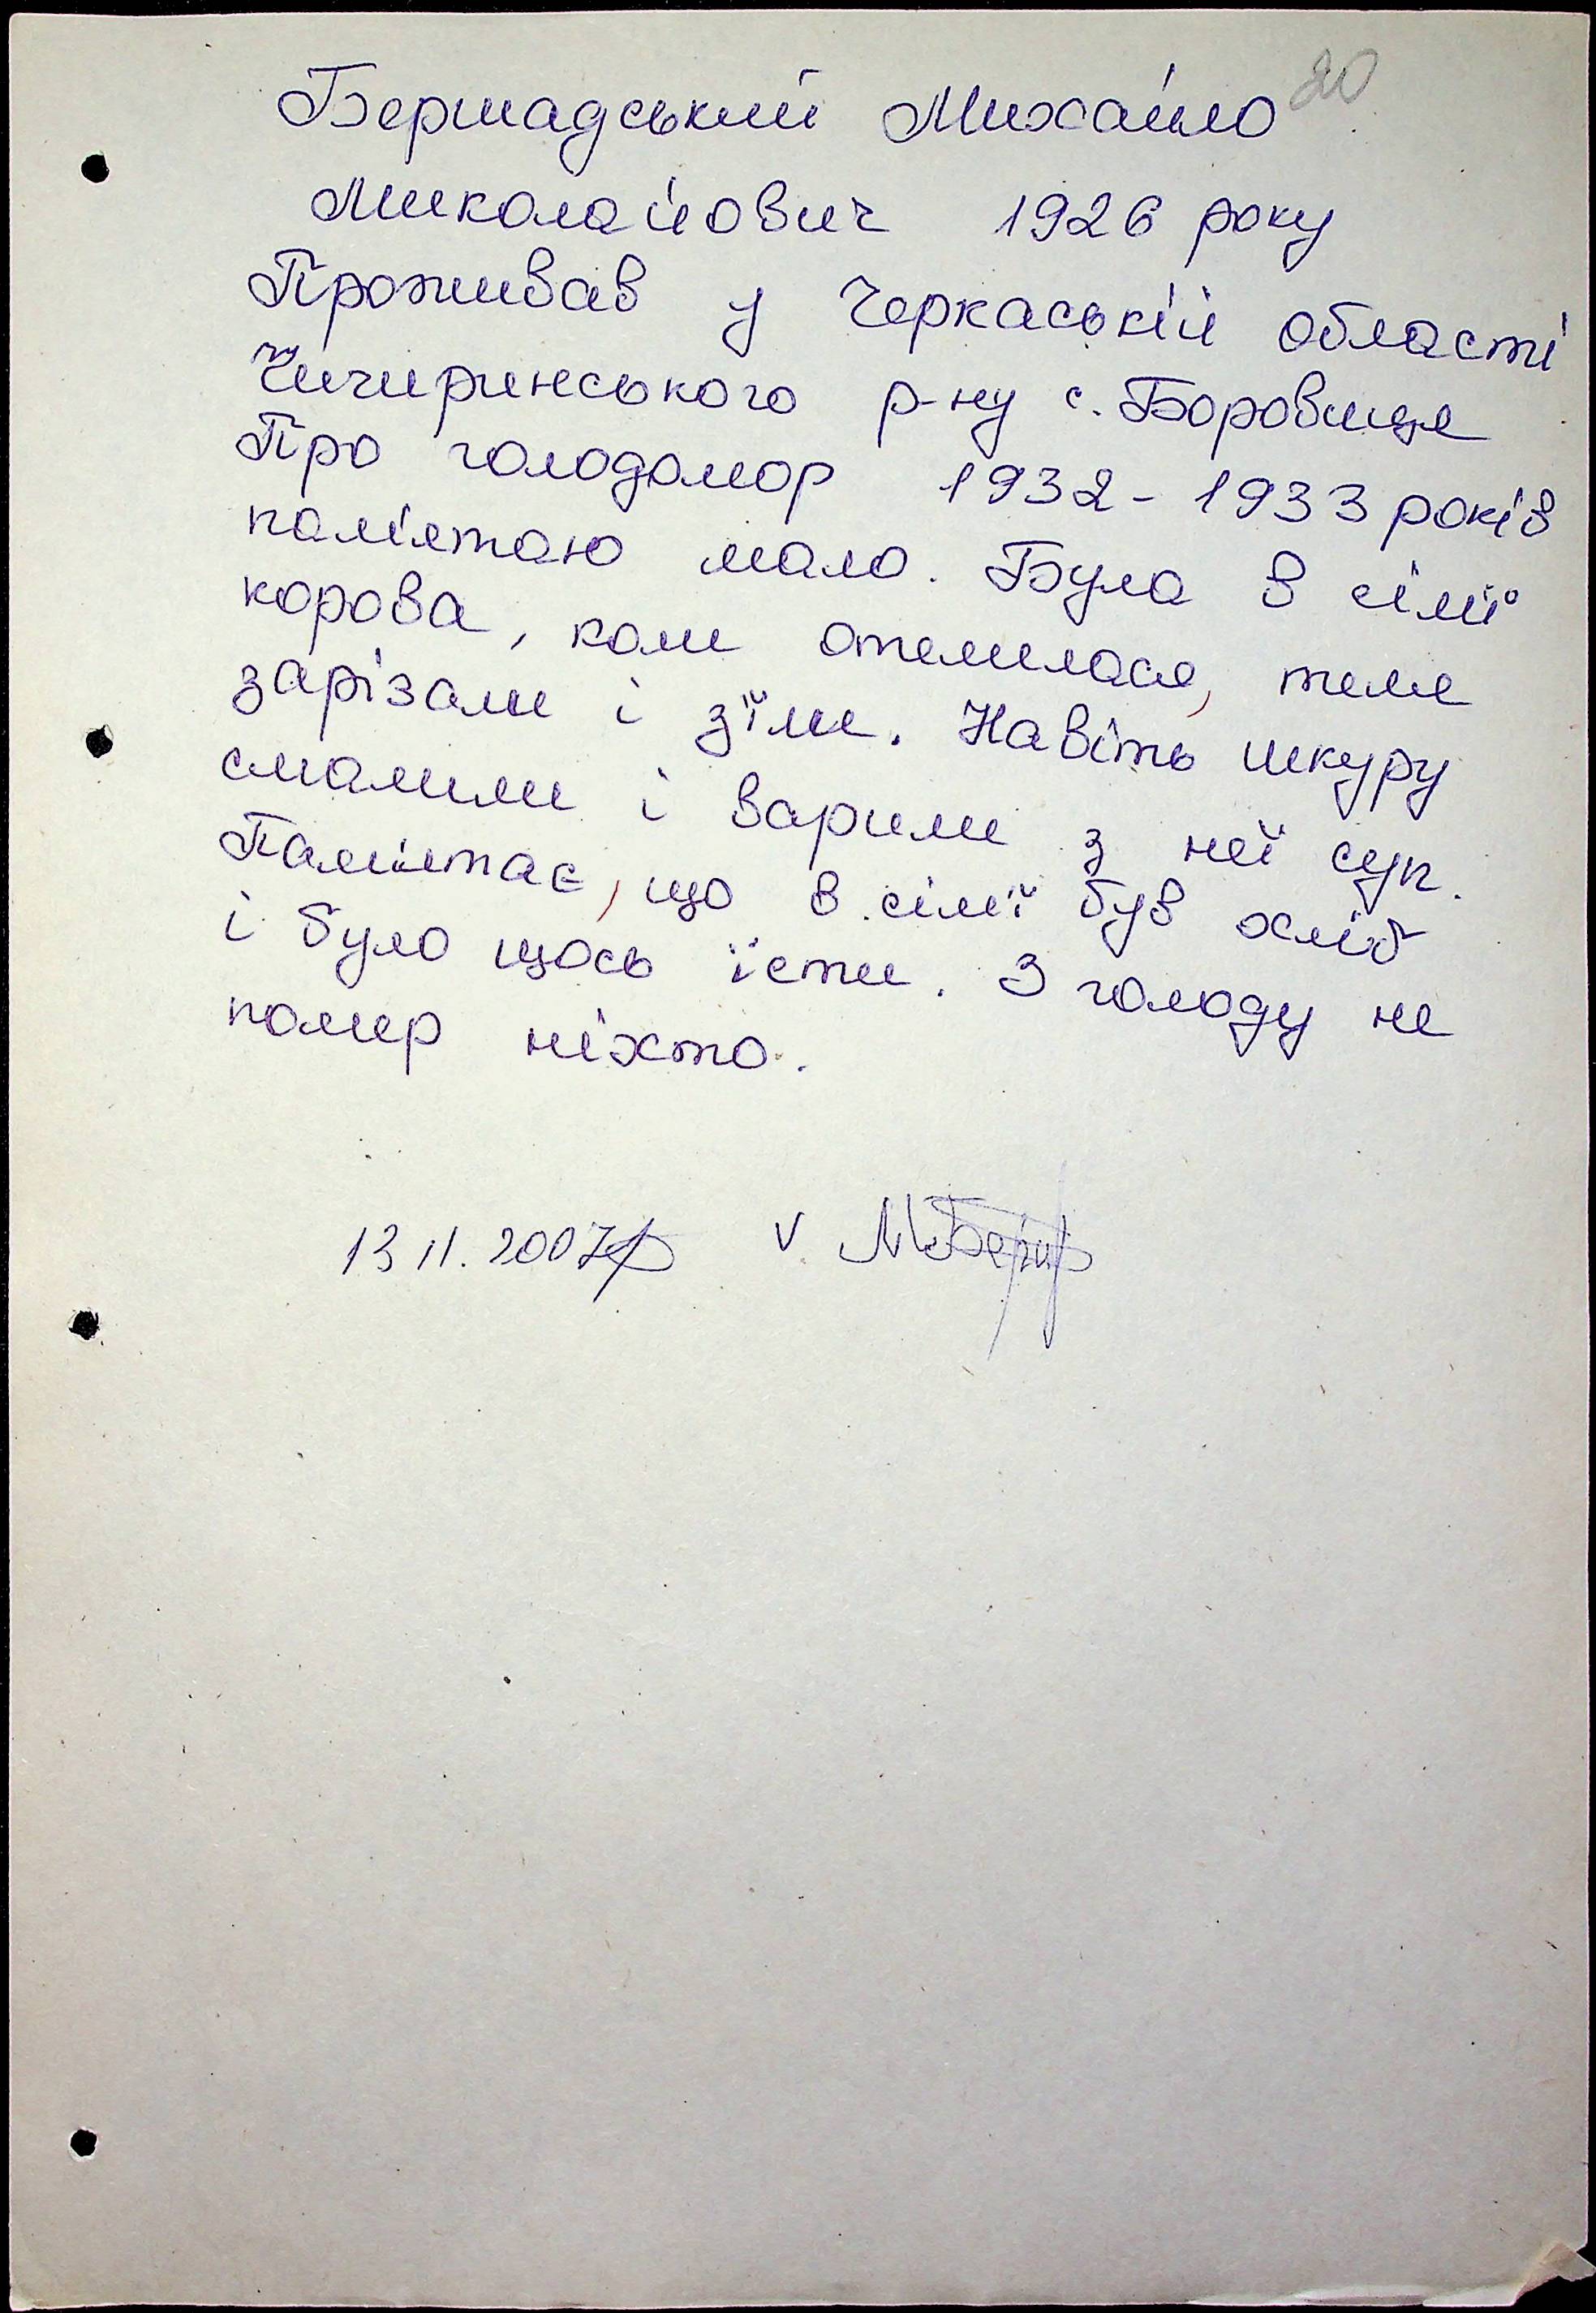 20
Бершадський Михайло
Миколайович 1926 року
Проживав у Черкаській області
Чигиринського р-ну с. Боровиця
Про голодомор 1932-1933 років
пам'ятаю мало. Була в сім'ї
корова, коли отелилася, теля
зарізали і з'їли. Навіть шкуру
смалили і варили з неї суп.
Пам'ятає, що в сім'ї був хліб
і було щось їсти. З голоду не
помер ніхто.
13 11. 2007р V